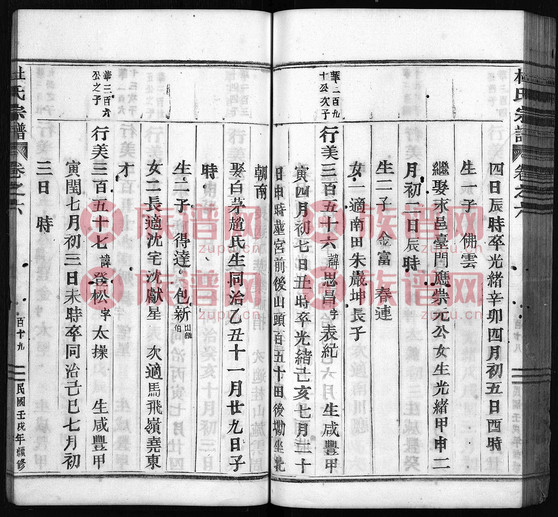 杜氏宗譜
卷之六
四日辰時卒光緒辛卯四月初五日酉時
生一子 佛雲
繼娶永邑臺門應崇元公女生光緒甲申二
月初一日辰時
生二子 金富 春連
女一適南田朱嚴坤長子
華二百九
十公次子
行美三百五十六 諱思昌字表紀 生咸豐甲
寅四月初七日丑時卒光緒己亥七月二十
日申時葬宮前後山頭百五十田後塝坐北
朝南
娶白茅趙氏生同治乙丑十一月廿九日子
時
生二子 得達 包新
女二長適沈宅沈獻星 次適馬飛嶺堯東
才
華三百六
公之子
行美三百五十七 諱發松字太操 生咸豐甲
寅閏七月初三日未時卒同治己巳七月初
三日 時
杜氏宗譜
卷之六
百十九
民國壬戌年續修
族谱网
zupu.cn